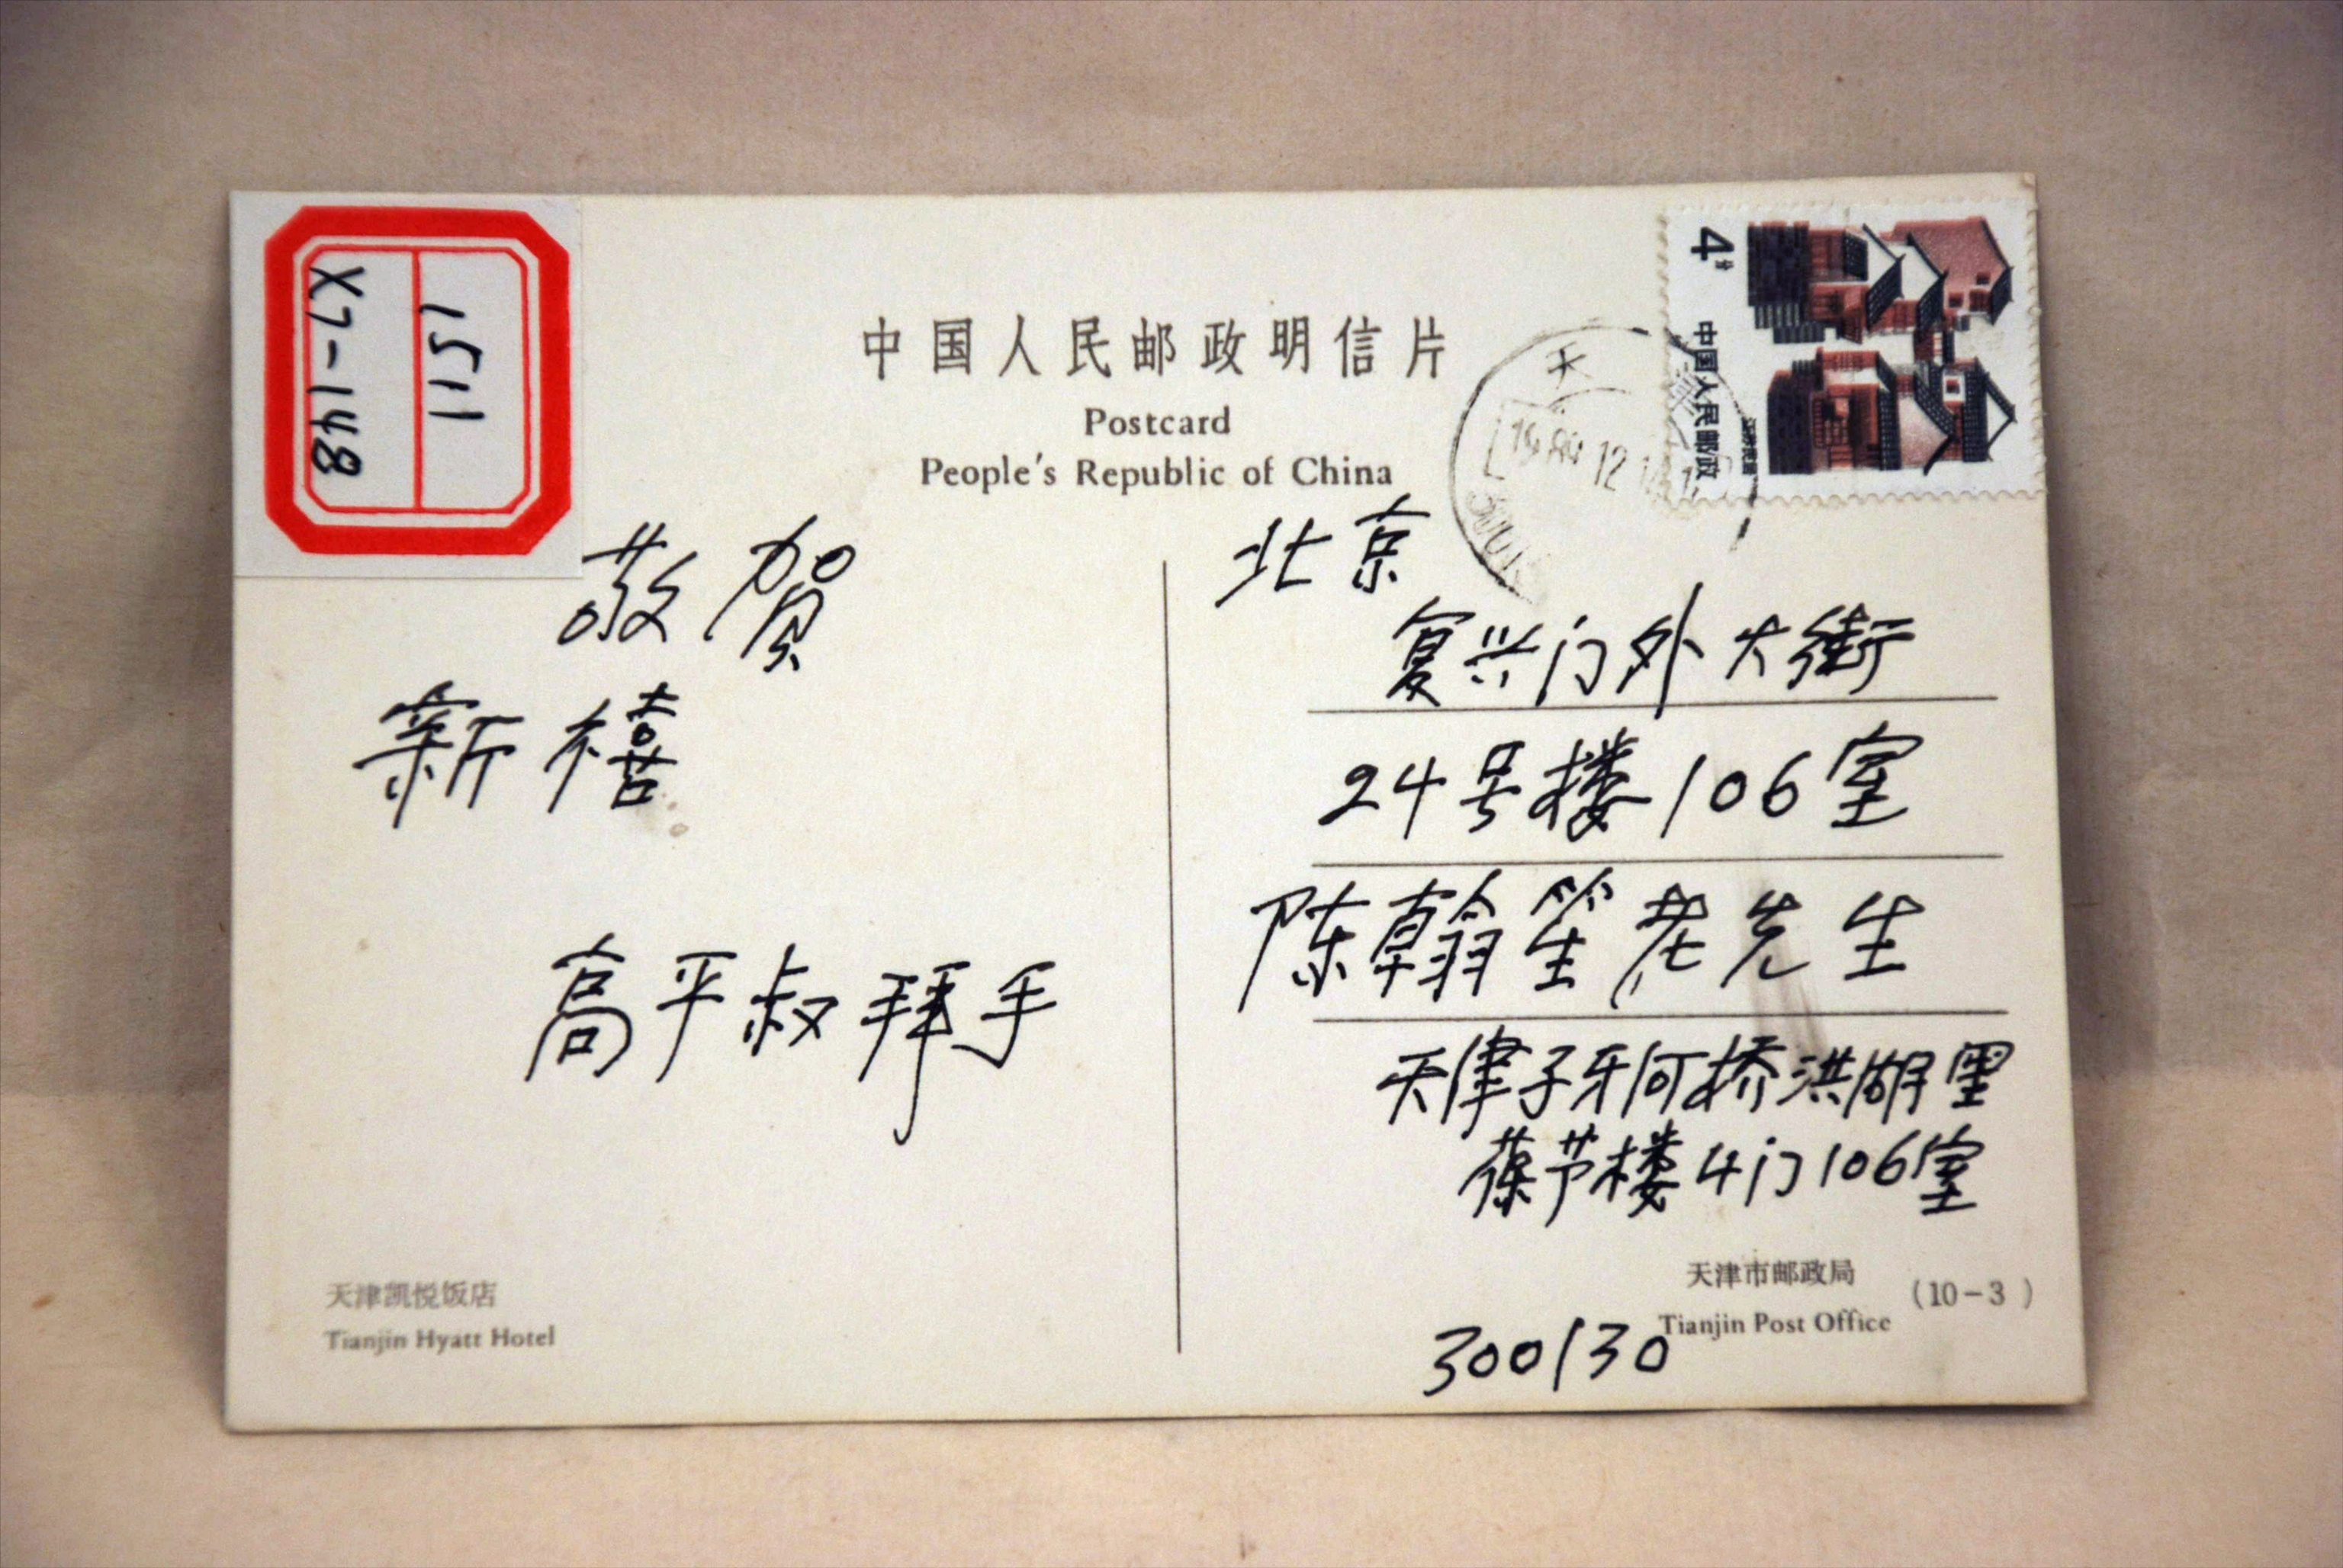 1511
X7-148
中国人民邮政明信片
Postcard
People's Republic of China
4分
中国人民邮政
天
12
敬贺
新禧
高平叔拜手
北京
复兴门外大街
24号楼106室
陈翰笙老先生
天津子牙河桥洪湖里
葆芦楼4门106室
天津凯悦饭店
Tianjin Hyatt Hotel
天津市邮政局
Tianjin Post Office
(10-3)
300130